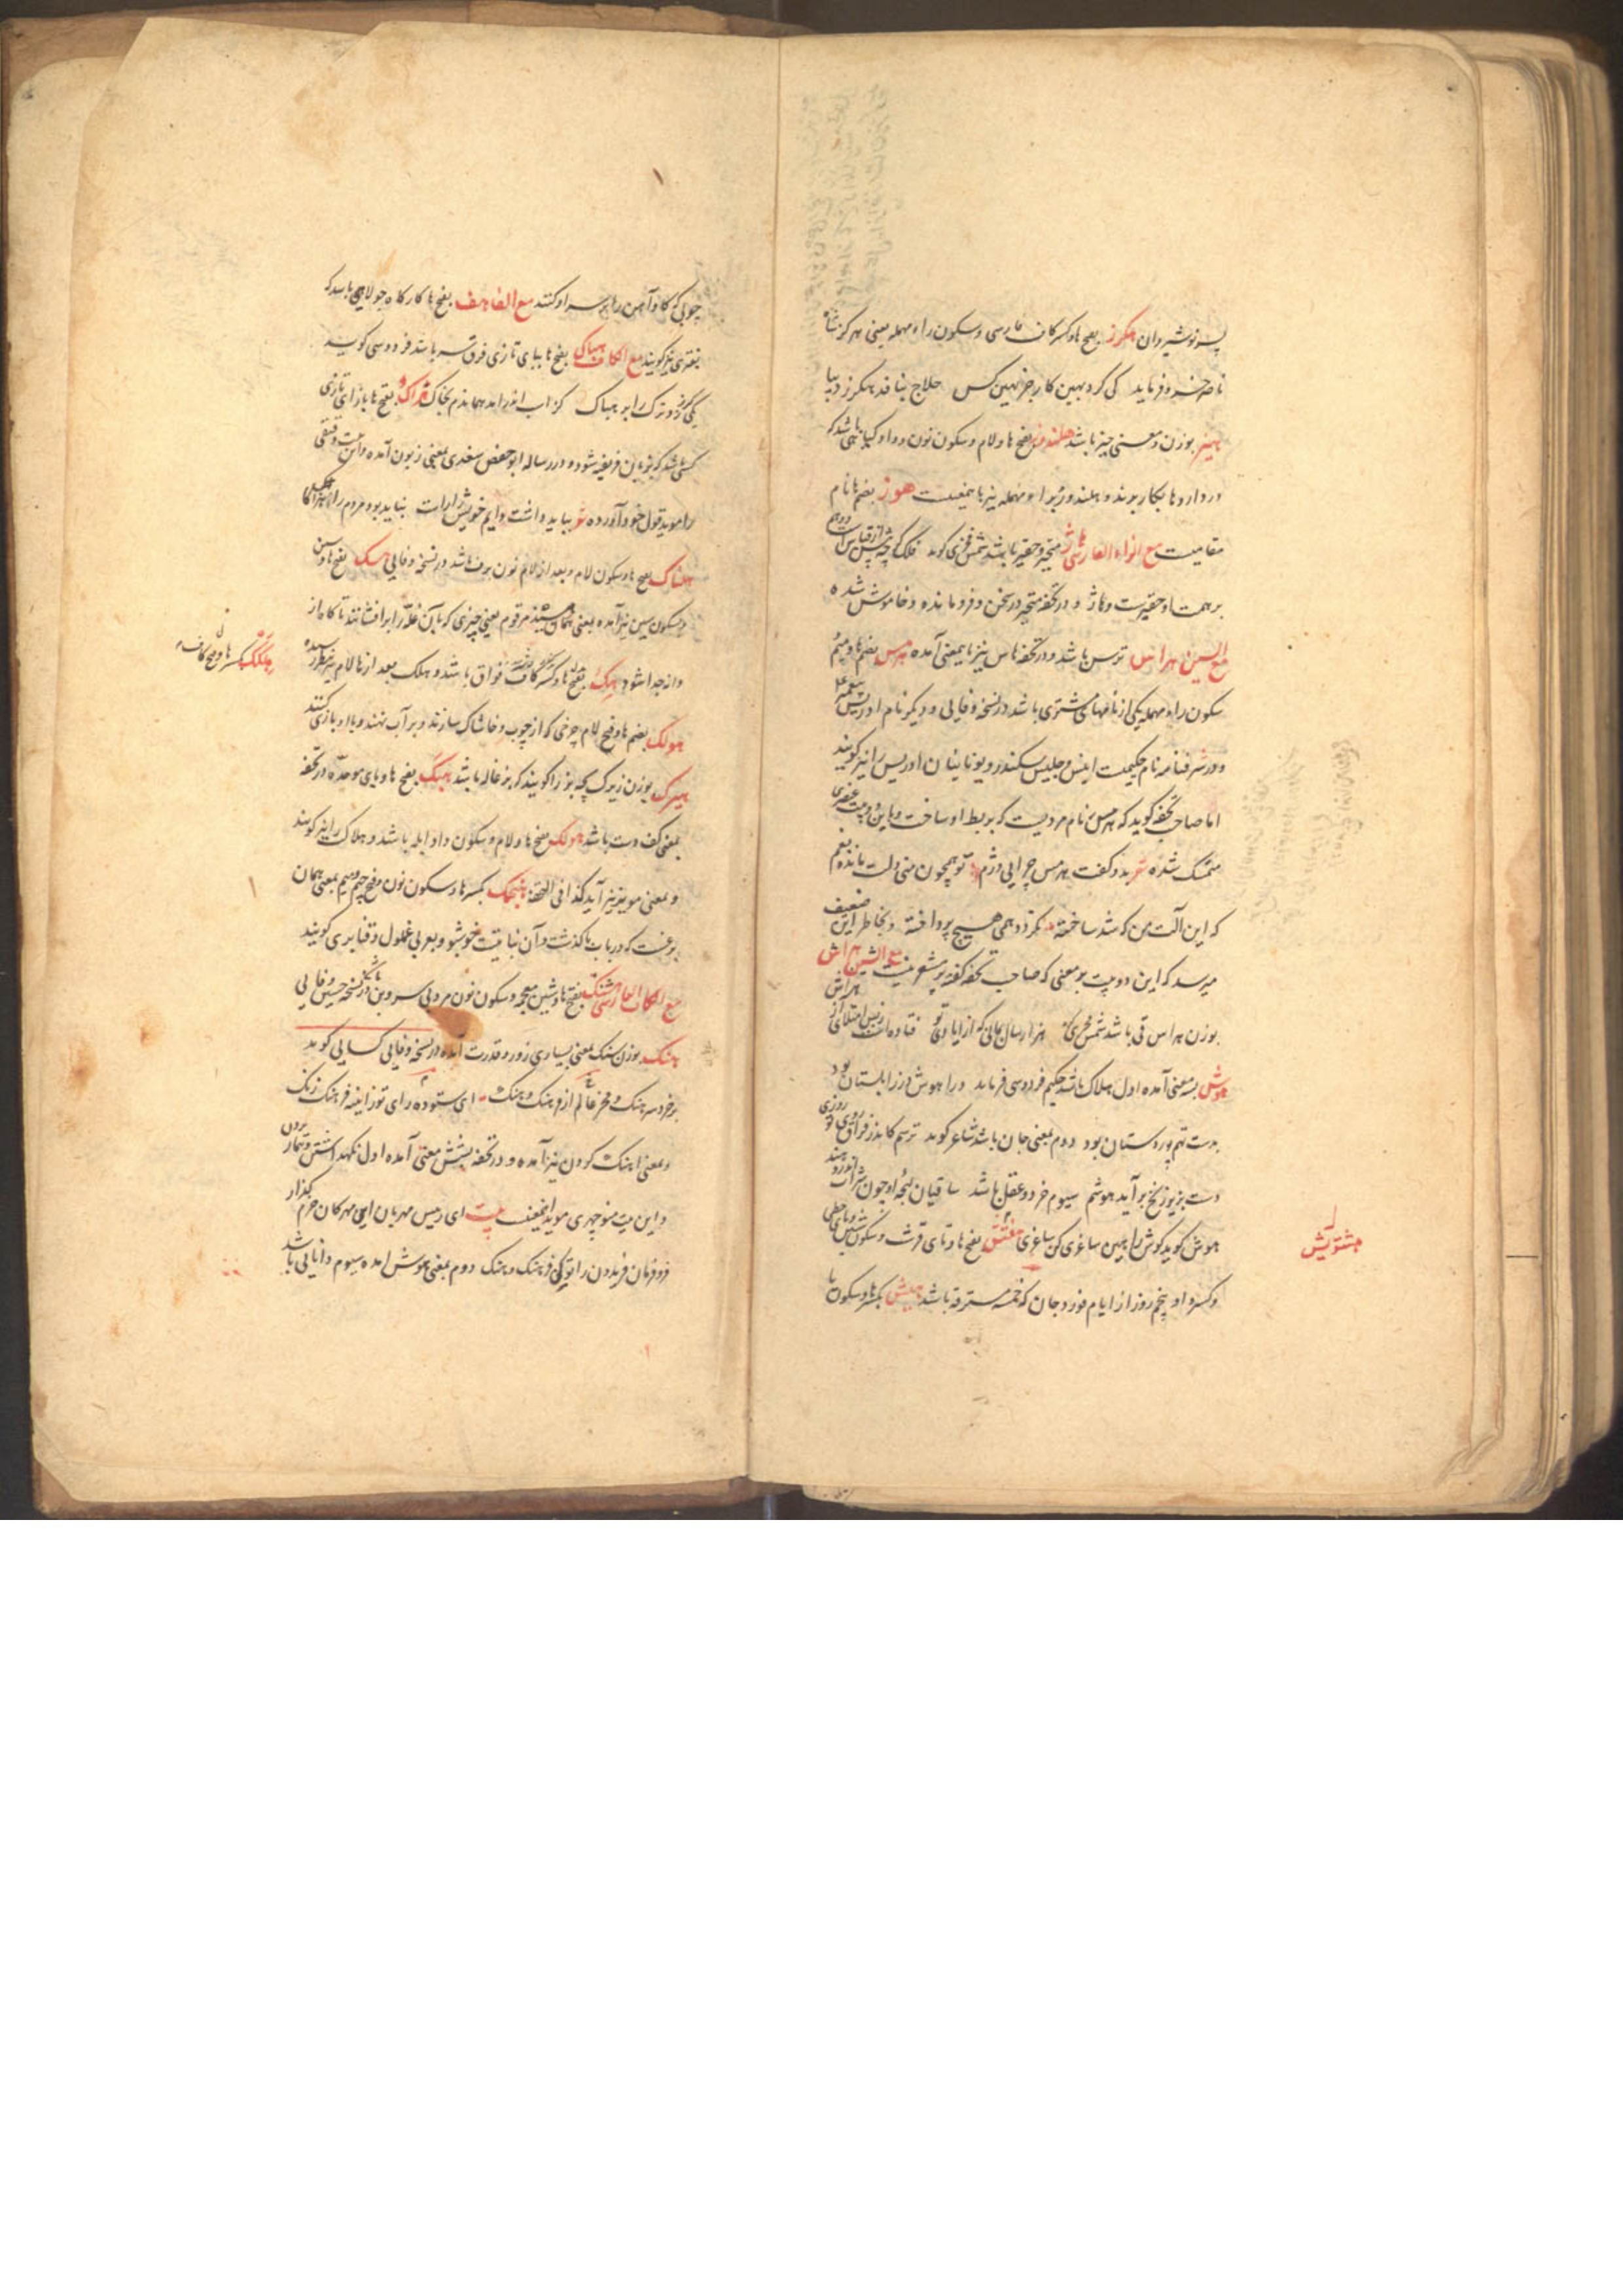 پسر نوشیروان هکرز بفتح ها و کسر کاف فارسی و سکون راء مهمله یعنی هرگز شاه
ناصر خسرو فرماید کی کرد بهین کار جز بهین کس حلاج نبافد هکرز دیبا
هیز بوزن و معنی حیز باشد هلندوز بفتح ها و لام و سکون نون و واو گیاهی باشد که
در داروها بکار برند و هلندور براء مهمله نیز باینمعنیست هوز بضم ها نام
مقامیست مع الزاء الفارسی هاژ متحیر و حقیر باشد شمس فخری گوید فلک گرچه پس از قیاس است
بر همت او حقیرست و هاژ و در تحفه متحیر در سخن و فرو مانده و خاموش شده
مع السین هراس ترس باشد و در تحفه هاس نیز باینمعنی آمده هرمس بضم ها و میم
سکون راء مهمله یکی از نامهای مشتری باشد در نسخه وفایی و دیگر نام ادریس پیغمبر
و در شرفنامه نام حکیمیست انیس و جلیس سکندر و یونانیان ادریس را نیز گویند
اما صاحب تحفه گوید که هرمس نام مردیست که بربط او ساخت و باین دو بیت عنصری
متمسک شده شعر بدو گفت هرمس چرایی دژم تو همچون منی دلت مانده بغم
که این آلت من که شد ساخته نگردد همی هیچ پرداخته و بخاطر این ضعیف
میرسد که این دو بیت بر معنی که صاحب تحفه گفته پر مشعر نیست مع الشین هراش
بوزن هراس قی باشد شمس فخری هزار سال بمانی که از ایادی تو فتاده است ز بس امتلا از هراش
هوش بسه معنی آمده اول هلاک باشد حکیم فردوسی فرماید ورا هوش در زابلستان بود
بدست تهم پور دستان بود دوم بمعنی جان باشد شاعر گوید ترسم کاندر فراق روی تو روزی
دست بزیور زنخ برآید هوشم سیوم خرد و عقل باشد ساقیان لهجه او چون شراب اندر دهند
هوش گوید گوش را بهین ساغری کن ساغری بفتح ها و تای قرشت و سکون شین و یای حطی
و کسر واو پنجم روز از ایام فوردجان که خمسه مسترقه باشد هیش بکسر ها و سکون یا
هشتویش
چوبی که گاو آهن را بر سر او کنند مع الفا هف بفتح ها کارگاه جولاهی باشد که
بفتری نیز گویند مع الکاف هباک بفتح ها ببای تازی فرق سر باشد فردوسی گوید
یکی گرز زد ترک را بر هباک کز اسب اندر آمد هماندم بخاک هزاک بفتح ها با زای تازی
کسی باشد که بزبان فریفته شود و در رساله ابو حفص سغدی بمعنی زبون آمده و این بیت دقیقی
را موید قول خود آورده شعر بباید داشت دایم خویش را راست نباید بود مردم را هزاکا
هلناک بفتح ها و سکون لام و بعد از لام نون برف باشد در نسخه وفایی هسک بفتح ها و سین
و سکون سین نیز آمده بمعنی همان مرقوم یعنی چیزی که بآن غله را برافشانند تا کاه از
دانه جدا شود هکک بفتح ها و کسر کاف فواق باشد و هلک بعد از ها لام نیز بنظر رسیده
هلکک بکسر ها و فتح کاف
هولک بضم ها و فتح لام چرخی که از چوب و خاشاک سازند و بر آب نهند و باو بازی کنند
هیرک بوزن زیرک بچه بز را گویند که بزغاله باشد هبک بفتح ها و بای موحده در تحفه
بمعنی کف دست باشد هولک بفتح ها و لام و سکون واو ابله باشد و هلاک را نیز گویند
و بمعنی مویز نیز آید کذا فی التحفه هنجمک بکسر ها و سکون نون و فتح جیم و میم بمعنی همان
برغست که در باب با گذشت و آن نباتیست خوشبو و بعربی غملول و قنابری گویند
مع الکاف الفارسی هشنگ بفتح ها و شین معجمه و سکون نون مردی بی سر و بن باشد در نسخه حسین وفایی
هنگ بوزن سنگ بمعنی بسیاری زور و قدرت آمده در نسخه وفایی کسایی گوید
بر خرد سرهنگ و فخر عالم از فرهنگ و هنگ ای ستوده رای تو ز آیینه فرهنگ زنگ
و بمعنی آهنگ کردن نیز آمده و در تحفه بشش معنی آمده اول نگهداشتن و تیمار بردن
و این بیت منوچهری موید اینمعنیست بیت ای رییس مهربان این مهرگان خرم گذار
فر و فرمان فریدون را تو کن فرهنگ و هنگ دوم بمعنی هوش آمده سیوم دانایی باشد